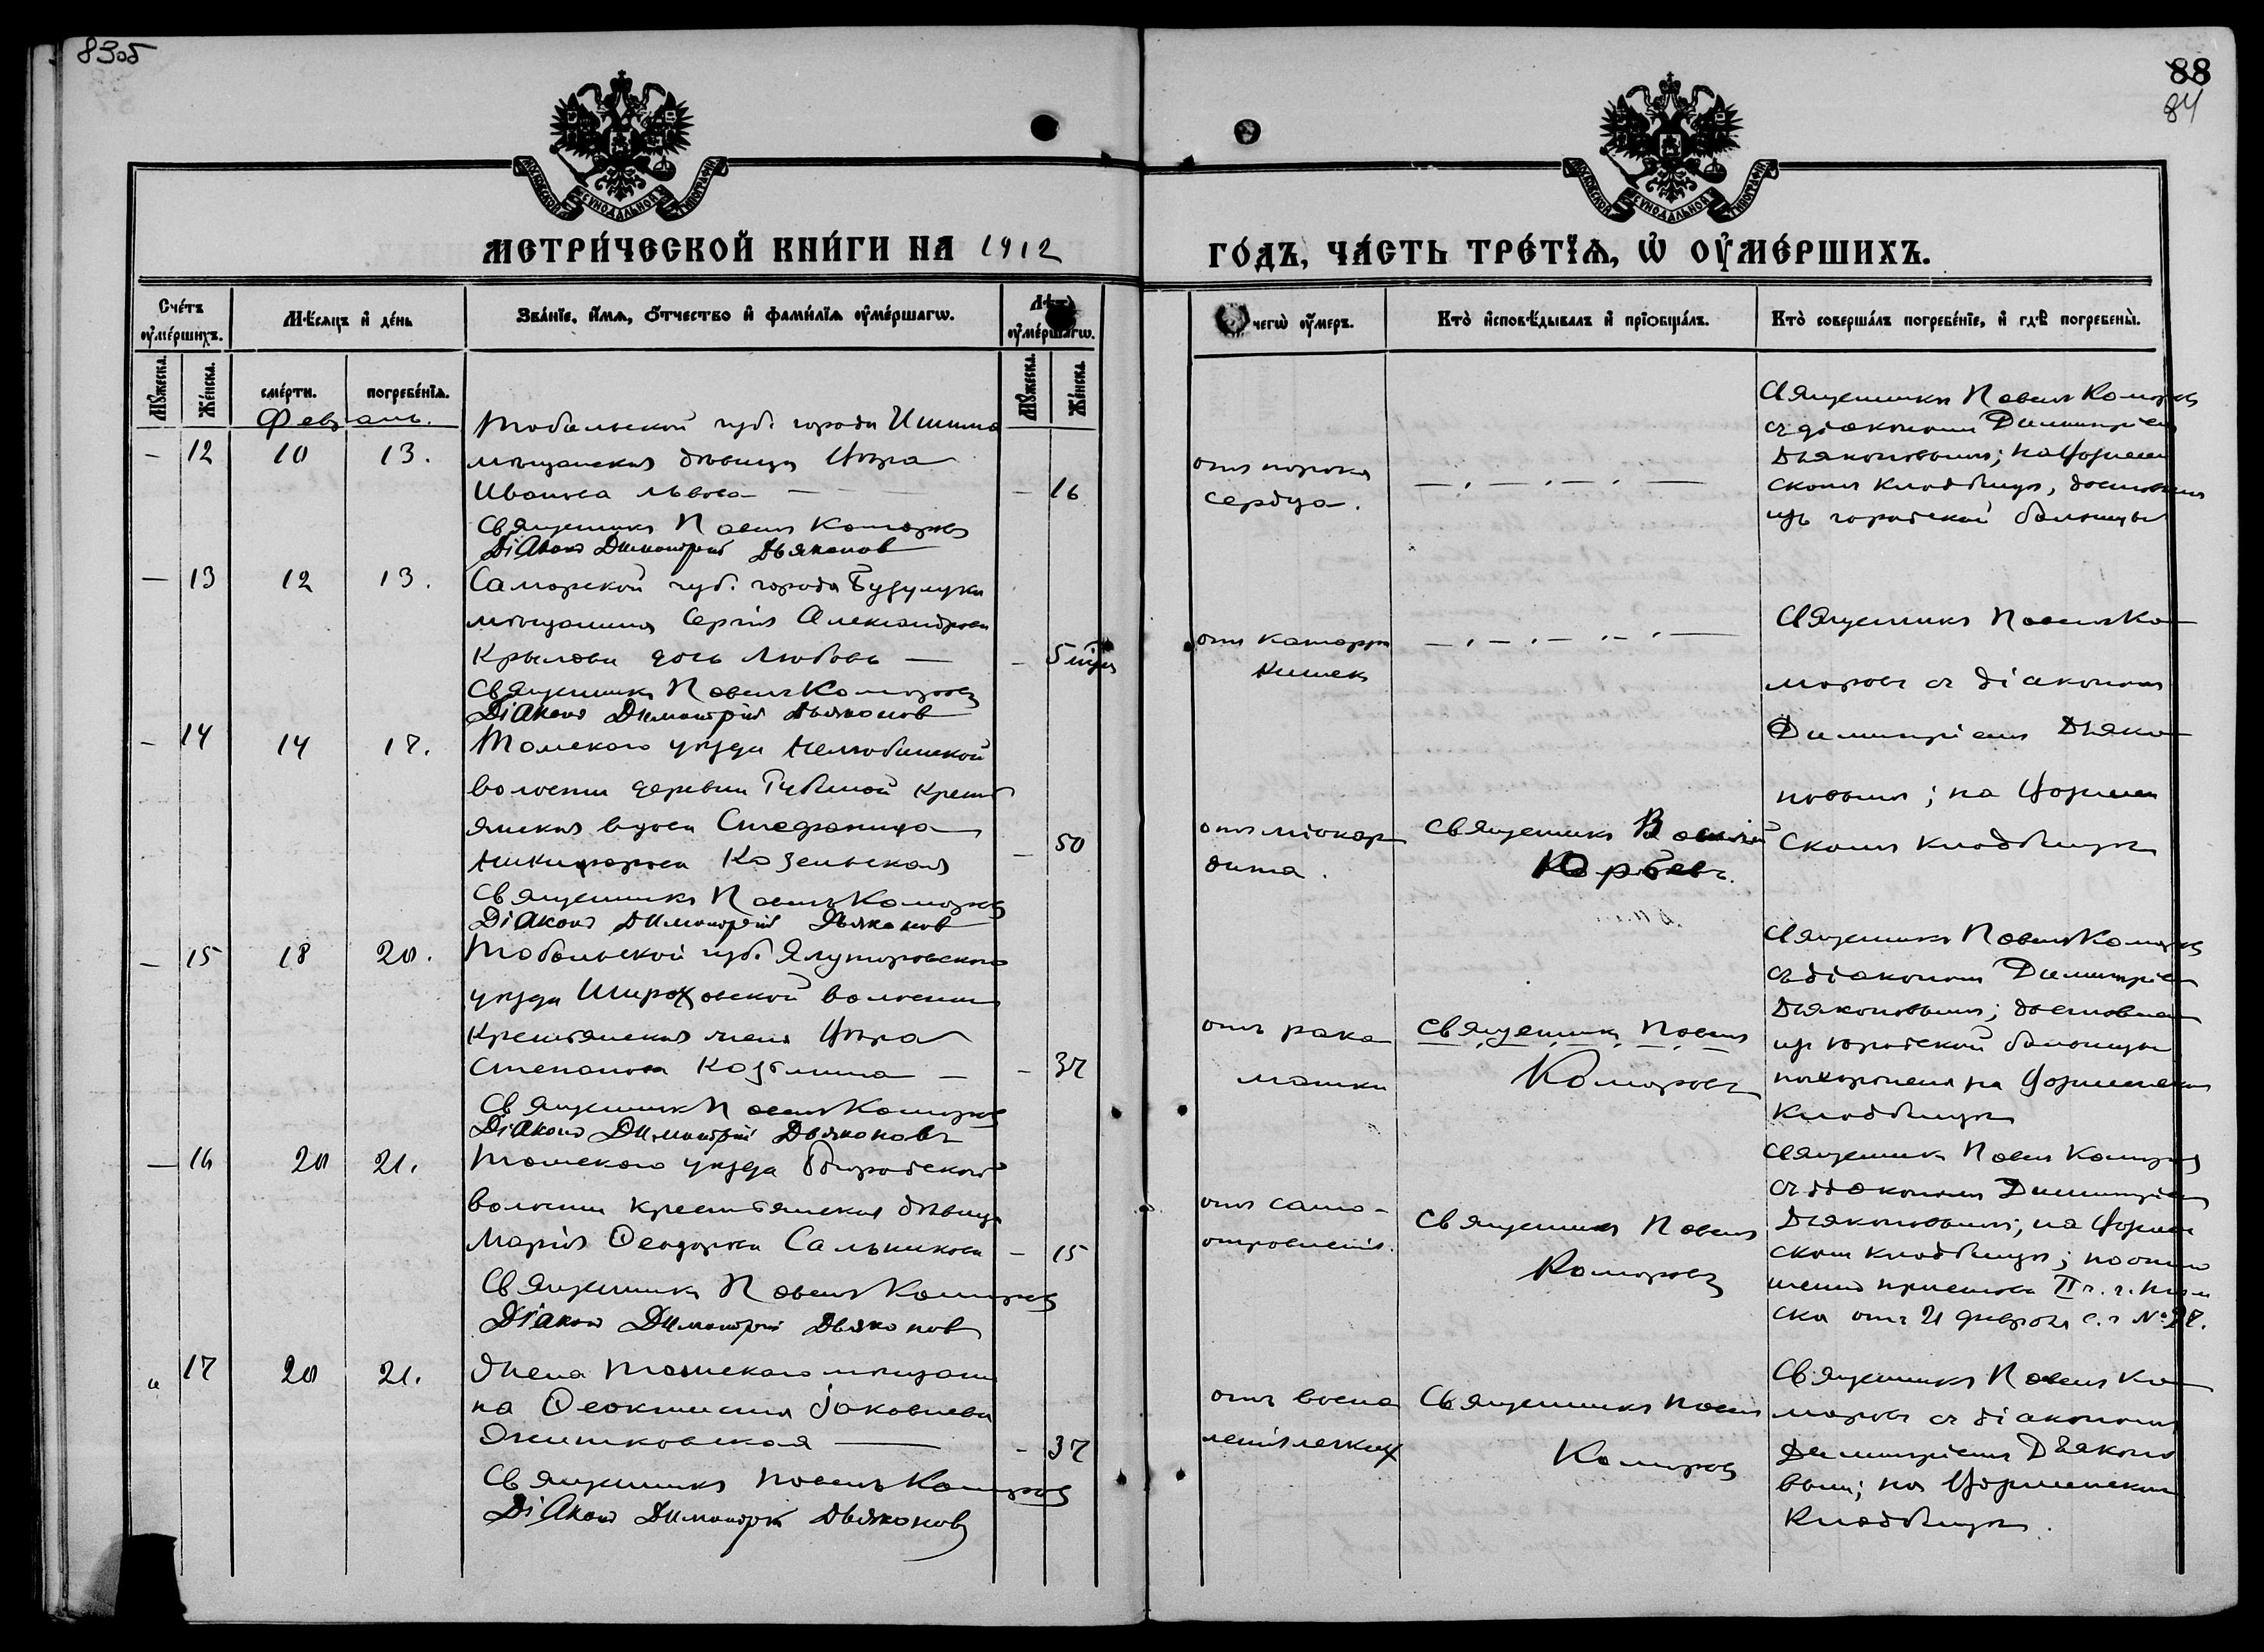 83об
88
84
МОСКОВСКОЙ СѴНОДАЛЬНОЙ ТИПОГРАФІИ
МОСКОВСКОЙ СѴНОДАЛЬНОЙ ТИПОГРАФІИ
МЕТРИ́ЧЕСКОЙ КНИ́ГИ НА 1912
ГО́ДЪ, ЧА́СТЬ ТРЕ́ТЇѦ, Ѡ҆ ОУ҆МЕ́РШИХЪ.
Сче́тъ оу҆ме́ршихъ.
Мѣ́сяцъ и҆ де́нь
Зва́нїе, и҆́мѧ, ѻ҆́тчество и҆ фами́лїѧ оу҆ме́ршагѡ.
Лѣ́та оу҆ме́ршагѡ.
чегѡ̀ оу҆́меръ.
Кто̀ и҆сповѣ́дывалъ и҆ прїѻбща́лъ.
Кто̀ соверша́лъ погребе́нїе, и҆ гдѣ̀ погребены̀.
Мꙋ́жеска.
Же́нска.
сме́рти.
погребе́нїѧ.
Мꙋ́жеска.
Же́нска.
Февраль.
— 12 10 13.
Тобольской губ. города Ишима
мѣщанская дѣвица
Иванова Львова —
— 16
Священникъ Павелъ Комаровъ
Діаконъ Димитрій Дьяконов
отъ порока
сердца.
Священникъ Павелъ Комаровъ
съ діакономъ Димитріемъ
Дьяконовымъ; на
скомъ кладбищѣ, доставлена
изъ городской больницы
— 13 12 13.
Самарской губ. города Бузулука
мѣщанина Сергія Александрова
Крылова дочь Любовь —
— 5 мѣс
Священникъ Павелъ Комаровъ
Діаконъ Димитрій Дьяконов
отъ катарра
кишек
Священникъ Павелъ Ко-
маровъ съ діакономъ
Димитріемъ Дьяко-
новымъ; на
скомъ кладбищѣ
— 14 14 17.
Томскаго уѣзда Нелюбинской
волости деревни Губиной крестъ
янская вдова Стефанида
Никифорова Козельская
— 50
Священникъ Павелъ Комаровъ
Діаконъ Димитрій Дьяконов
отъ міокар
дита.
Священникъ Василій
Юрьевъ.
— 15 18 20.
Тобольской губ. Ялуторовскаго
уѣзда Шороховской волости
крестьянская жена
Степанова Козьмина —
— 37
Священникъ Павелъ Комаровъ
Діаконъ Димитрій Дьяконовъ
отъ рака
матки
Священникъ Павелъ
Комаровъ
Священникъ Павелъ Комаровъ
съ діакономъ Димитріемъ
Дьяконовымъ; доставлена
изъ городской больницы
похоронена на
кладбищѣ
— 16 20 21.
Томскаго уѣзда
волости крестьянская дѣвица
Марія Ѳеодорова Сальникова
— 15
Священникъ Павелъ Комаровъ
Діаконъ Димитрій Дьяконов
отъ само-
отравленія.
Священникъ Павелъ
Комаровъ
Священникъ Павелъ Комаровъ
съ діакономъ Димитріемъ
Дьяконовымъ; на
скомъ кладбищѣ; по отно
шенію пристава II ч. г. Том
ска отъ 21 февраля с.г. №
„ 17 20 21.
Жена Томскаго мѣщани
на Ѳеоктиста Іаковлева
Житковская —
— 37
Священникъ Павелъ Комаровъ
Діаконъ Димитрій Дьяконовъ
отъ воспа
ленія легких
Священникъ Павелъ
Комаровъ
Священникъ Павелъ Ко-
маровъ съ діакономъ
Димитріемъ Дьяконо
вымъ; на
кладбищѣ.